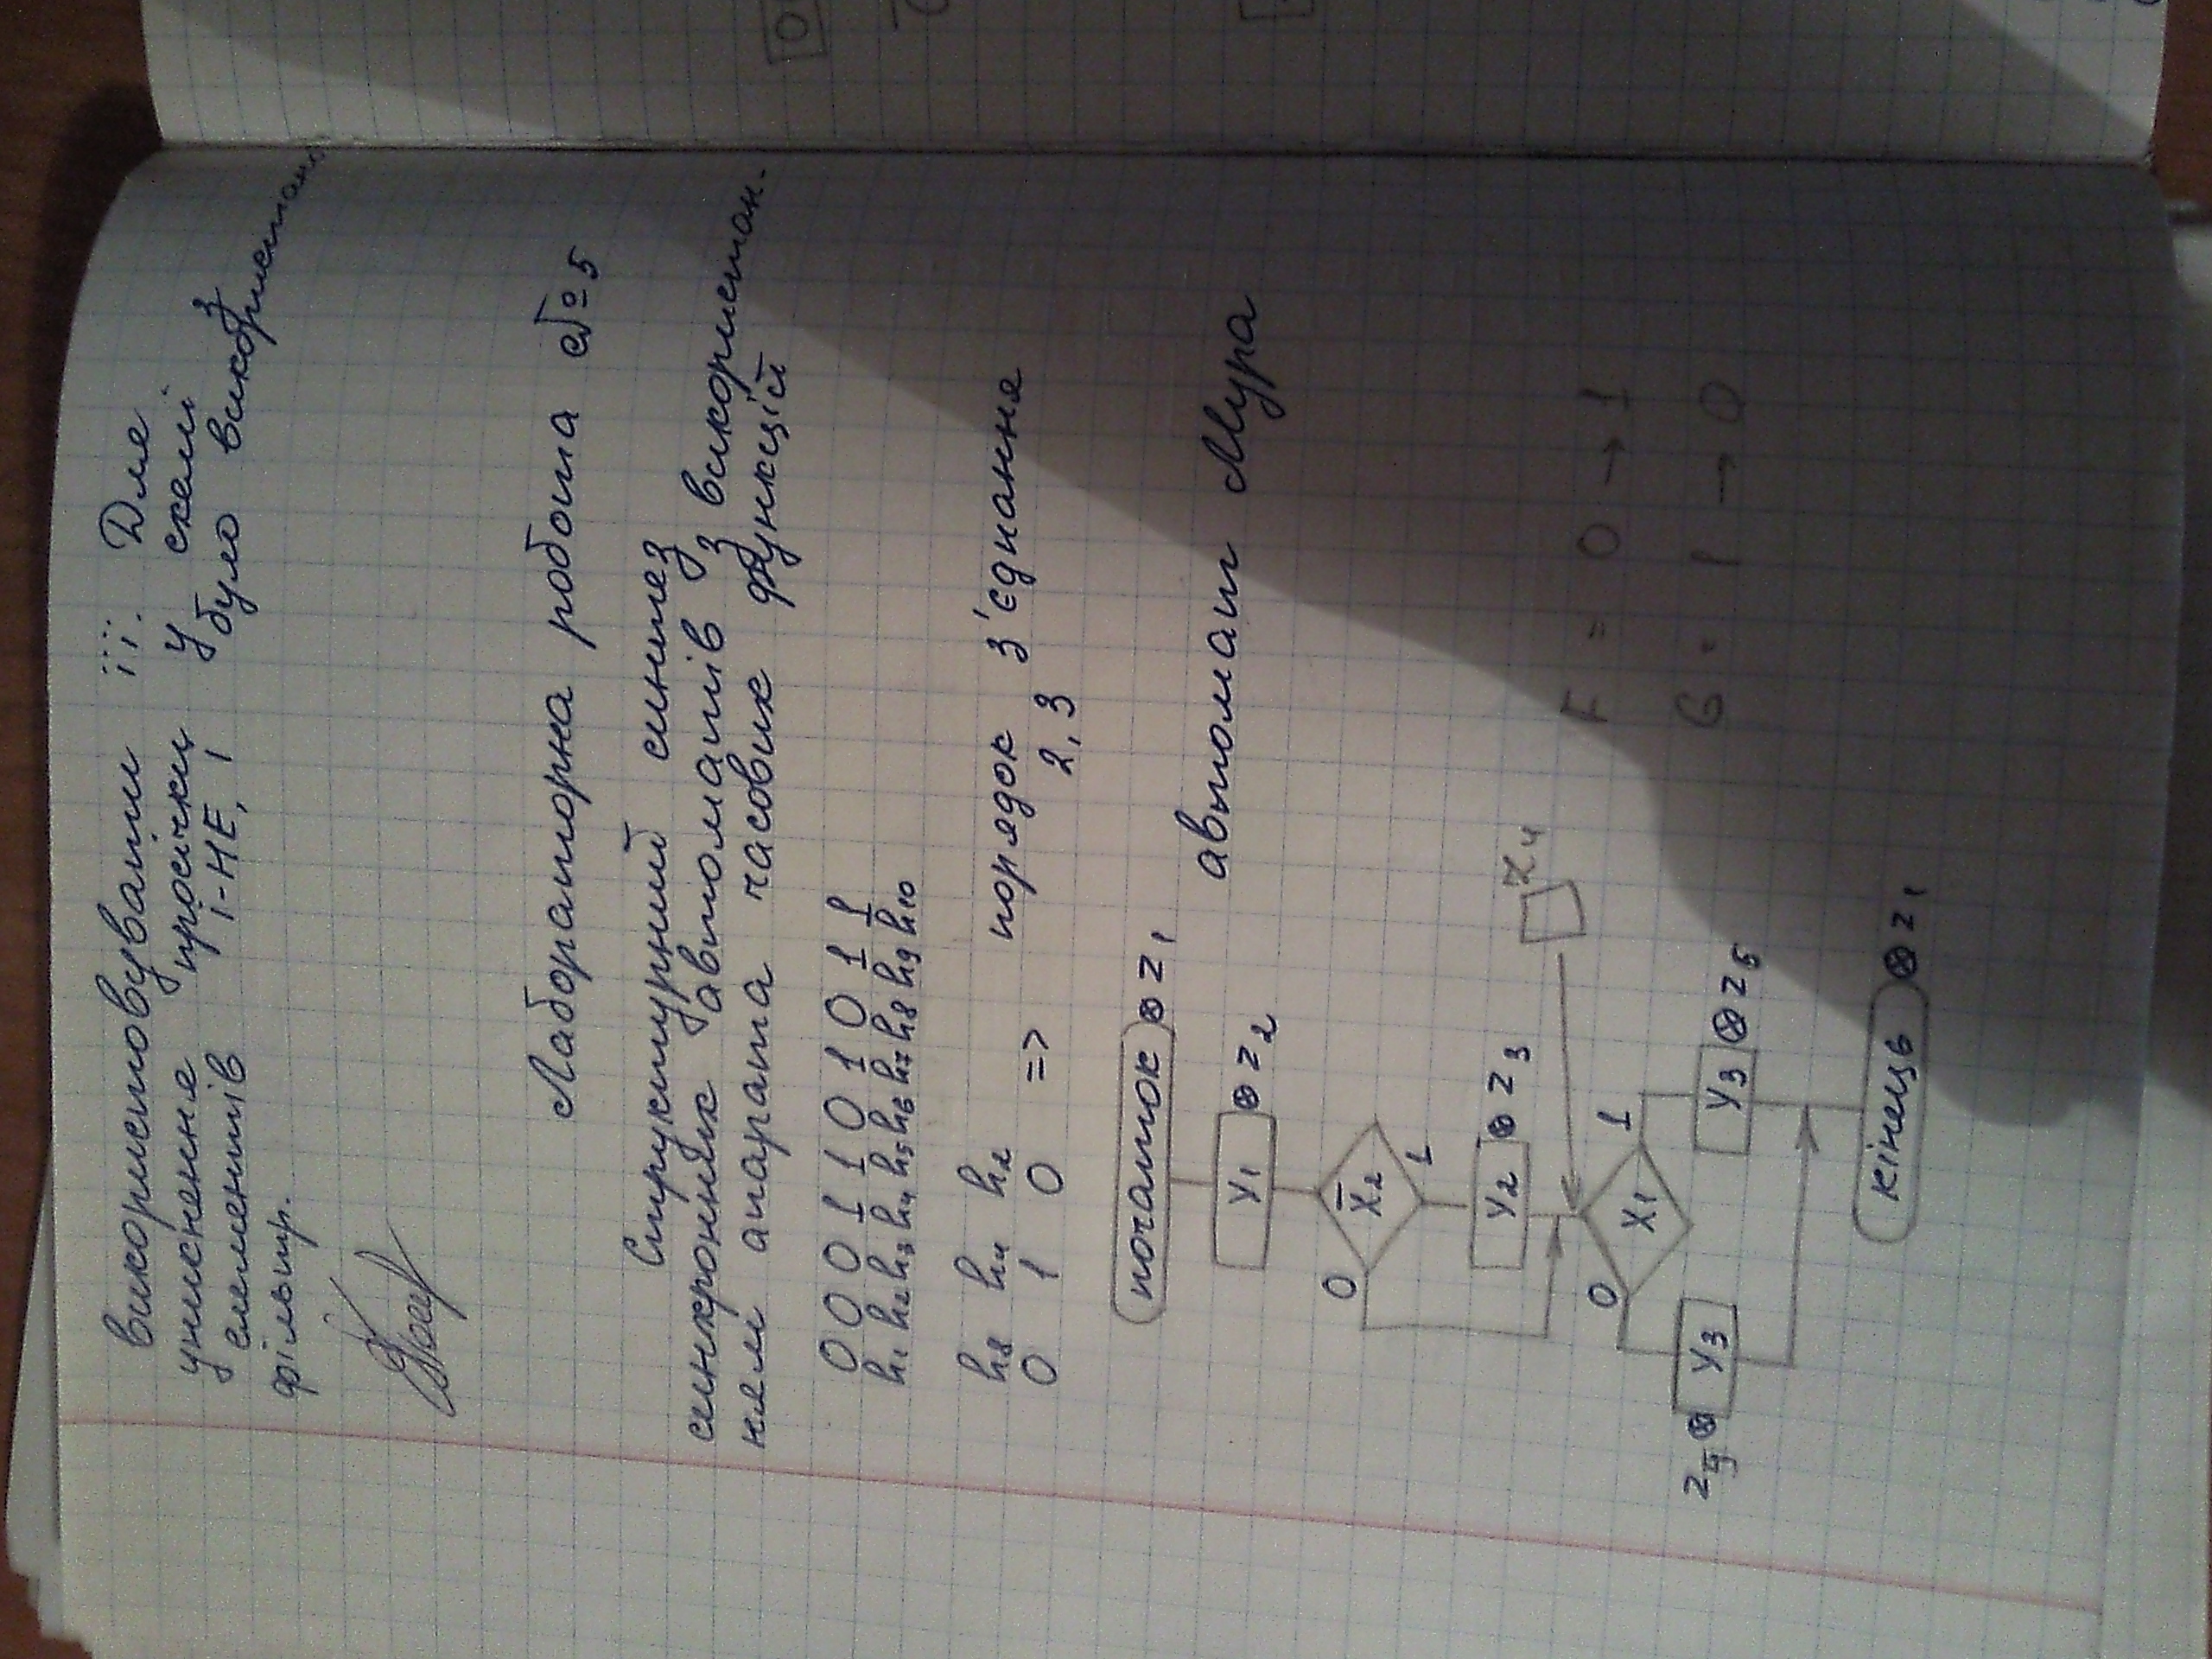 використовувати її. Для
уникнення просічки у схемі з
елементів і-НЕ, і було використано
фільтр.
Лабораторна робота №5
Структурний синтез
синхронних автоматів з використан-
ням апарата часових функцій
0 0 0 1 1 0 1 0 1 1
h1 h2 h3 h4 h5 h6 h7 h8 h9 h10
h8 h4 h2 порядок з'єднання
0 1 0 => 2, 3
початок z1
автомат Мура
y1 z2
0 x̄2
1
y2 z3
z4
0 x1 1
F = 0 → 1
z5 y3 y3 z6
G = 1 → 0
кінець z1